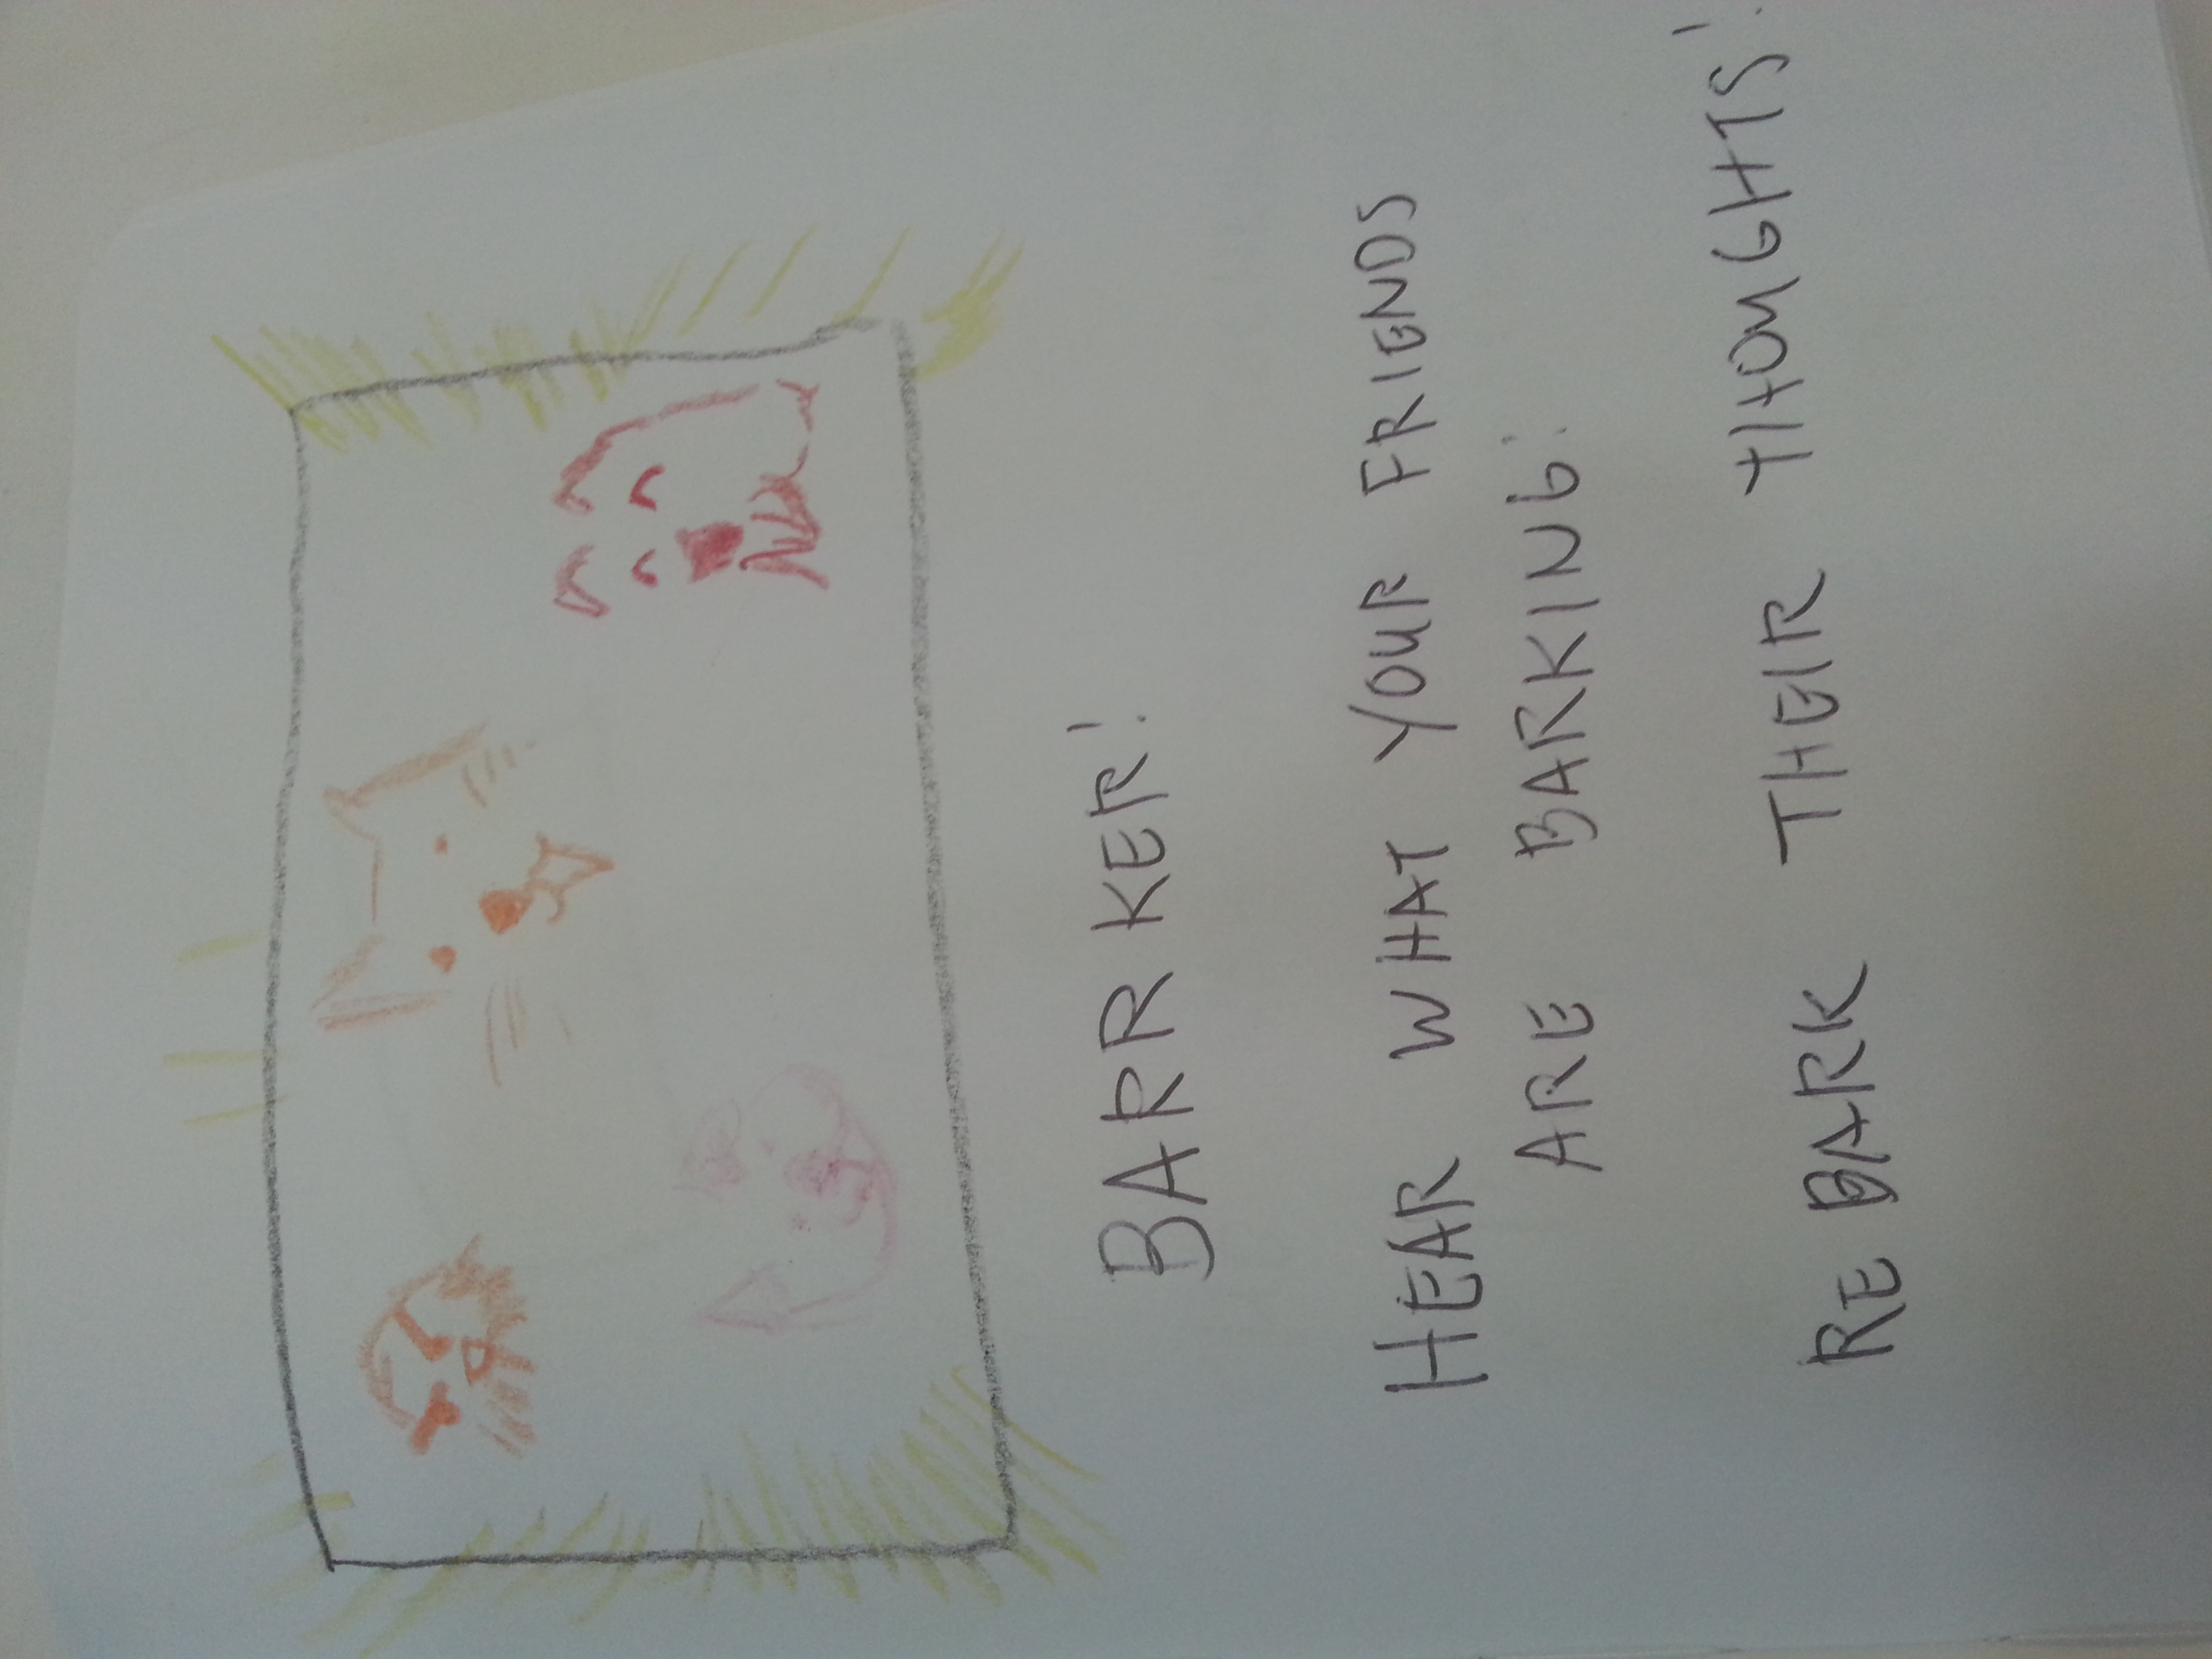 BARRKER!
HEAR WHAT YOUR FRIENDS
ARE BARKING!
REBARK THEIR THOUGHTS!